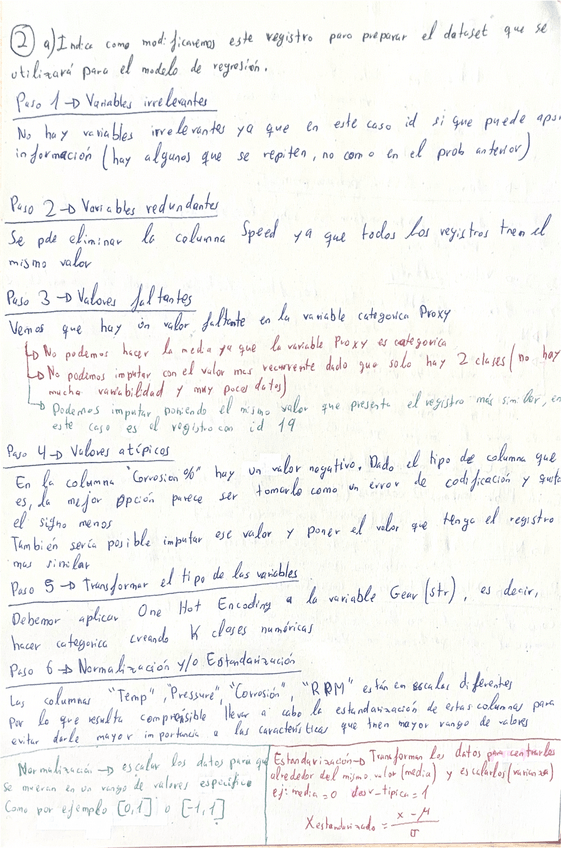 ② a) Indica como modificaremos este registro para preparar el dataset que se
utilizará para el modelo de regresión.
Paso 1 → Variables irrelevantes
No hay variables irrelevantes ya que en este caso id si que puede apor
información (hay algunos que se repiten, no como en el prob anterior)
Paso 2 → Variables redundantes
Se pde eliminar la columna Speed ya que todos los registros tnen el
mismo valor
Paso 3 → Valores faltantes
Vemos que hay un valor faltante en la variable categorica Proxy
↳ No podemos hacer la media ya que la variable Proxy es categorica
↳ No podemos imputar con el valor mas recurrente dado que solo hay 2 clases (no hay
mucha variabilidad y muy pocos datos)
↳ Podemos imputar poniendo el mismo valor que presenta el registro más similar, en
este caso es el registro con id 19
Paso 4 → Valores atípicos
En la columna "Corrosion %" hay un valor negativo. Dado el tipo de columna que
es, la mejor opción parece ser tomarlo como un error de codificación y quitar
el signo menos
También sería posible imputar ese valor y poner el valor que tenga el registro
mas similar
Paso 5 → Transformar el tipo de las variables
Debemos aplicar One Hot Encoding a la variable Gear (str), es decir,
hacer categorica creando K clases numéricas
Paso 6 → Normalización y/o Estandarización
Las columnas "Temp", "Pressure", "Corrosión", "RPM" están en escalas diferentes
Por lo que resulta comprensible llevar a cabo la estandarización de estas columnas para
evitar darle mayor importancia a las características que tnen mayor rango de valores
Normalización → escalar los datos para que
se muevan en un rango de valores específico
Como por ejemplo [0,1] o [-1,1]
Estandarización → Transforman los datos para centrarlos
alrededor del mismo valor (media) y escalarlos (varianza)
ej: media = 0 desv-tipica = 1
X estandarizado = x - μ / σ